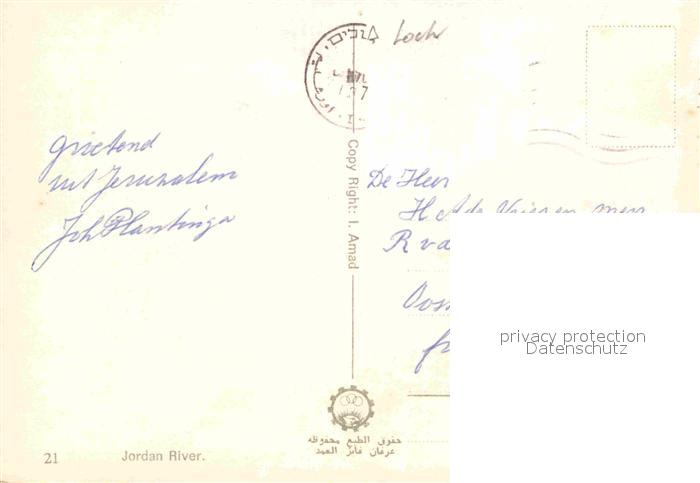 Loch
Groetend
uit Jeruzalem
Joh Plantinga
Copy Right: I. Amad
De Heer
H de Vries en mevr
R va
Oos
fr
privacy protection
Datenschutz
حقوق الطبع محفوظه
عرفان فايز العمد
21 Jordan River.